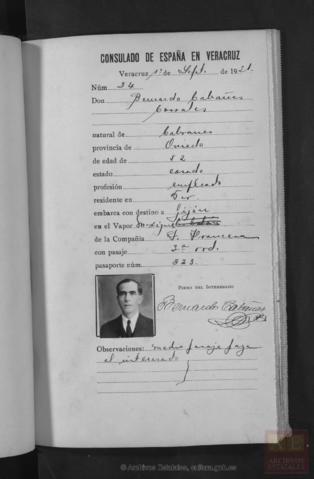 CONSULADO DE ESPAÑA EN VERACRUZ
Veracruz, 1º de Sept. de 1921.
Núm 34
Don Bernardo Cabañes
Corrales
natural de Cabranes
provincia de Oviedo
de edad de 52
estado casado
profesión empleado
residente en
embarca con destino a Gijón
en el Vapor
de la Compañía F. Francesa
con pasaje 3ª ord.
pasaporte núm. 823.
FIRMA DEL INTERESADO
Bernardo Cabañes
Observaciones: medio pasaje paga
el interesado
© Archivos Estatales, cultura.gob.es
ARCHIVOS
ESTATALES